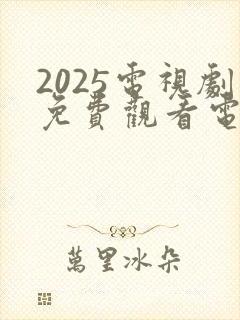 2025電視劇
免費觀看電
萬里冰朵